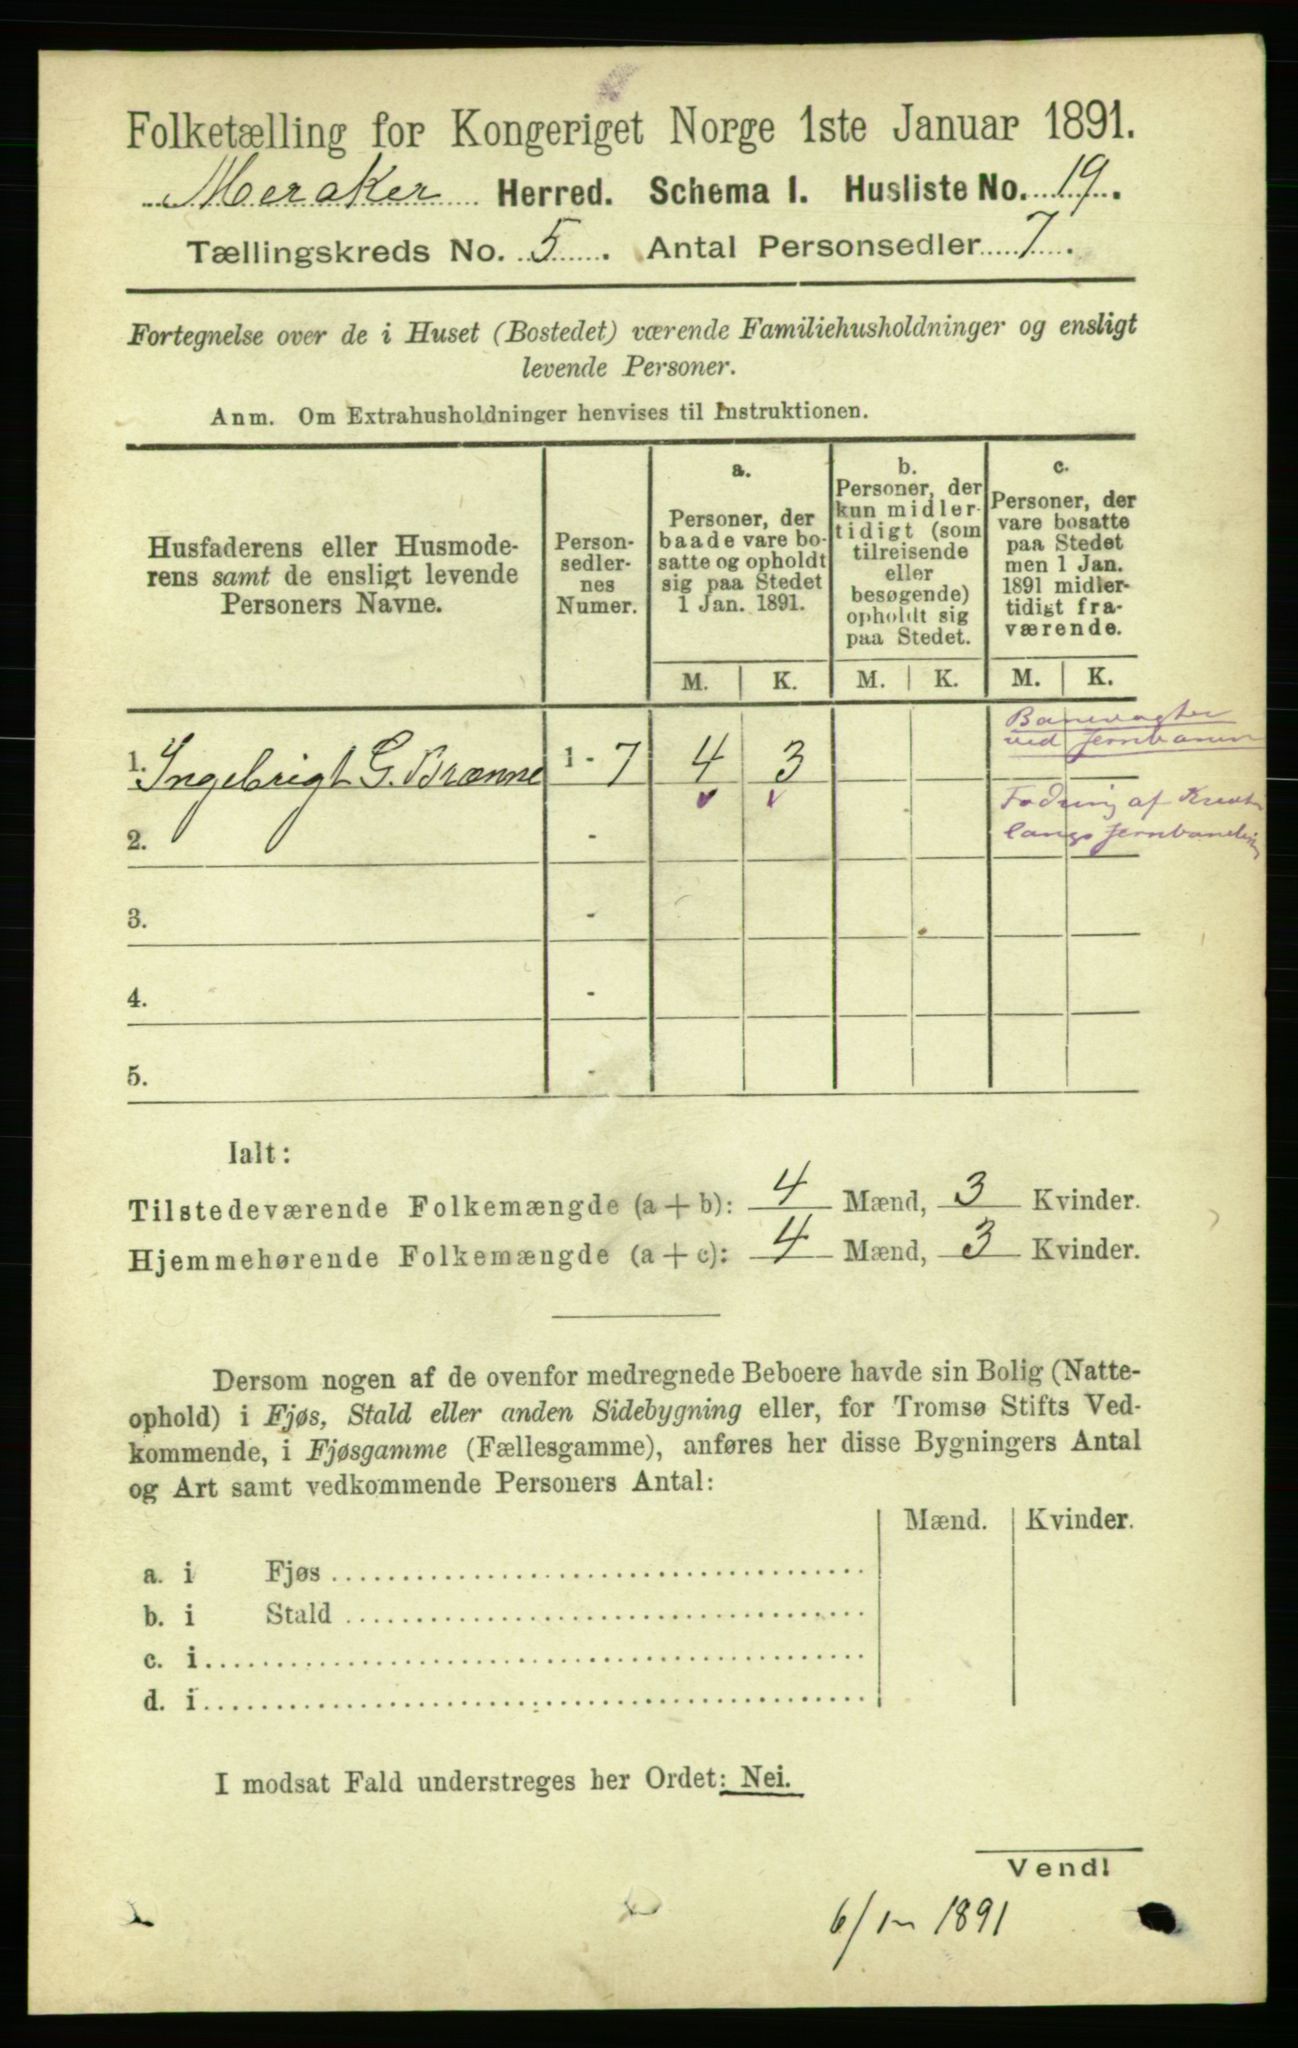 Folketælling for Kongeriget Norge 1ste Januar 1891.
Meraker Herred. Schema I. Husliste No. 19.
Tællingskreds No. 5. Antal Personsedler 7.
Fortegnelse over de i Huset (Bostedet) værende Familiehusholdninger og ensligt
levende Personer.
Anm. Om Extrahusholdninger henvises til Instruktionen.
Husfaderens eller Husmode-
rens samt de ensligt levende
Personers Navne.
Person-
sedler-
nes
Numer.
a.
Personer, der
baade vare bo-
satte og opholdt
sig paa Stedet
1 Jan. 1891.
b.
Personer, der
kun midler-
tidigt (som
tilreisende
eller
besøgende)
opholdt sig
paa Stedet.
c.
Personer, der
vare bosatte
paa Stedet
men 1 Jan.
1891 midler-
tidigt fra-
værende.
M. K. M. K. M. K.
Banevogter
ved Jernbanen
1. Ingebrigt G. Brænne 1 - 7 4 3
Fodring af
langs
2. -
3. -
4. -
5. -
Ialt:
Tilstedeværende Folkemængde (a + b): 4 Mænd, 3 Kvinder.
Hjemmehørende Folkemængde (a + c): 4 Mænd, 3 Kvinder.
Dersom nogen af de ovenfor medregnede Beboere havde sin Bolig (Natte-
ophold) i Fjøs, Stald eller anden Sidebygning eller, for Tromsø Stifts Ved-
kommende, i Fjøsgamme (Fællesgamme), anføres her disse Bygningers Antal
og Art samt vedkommende Personers Antal:
Mænd. Kvinder.
a. i Fjøs
b. i Stald
c. i
d. i
I modsat Fald understreges her Ordet: Nei.
Vend!
6/1 1891